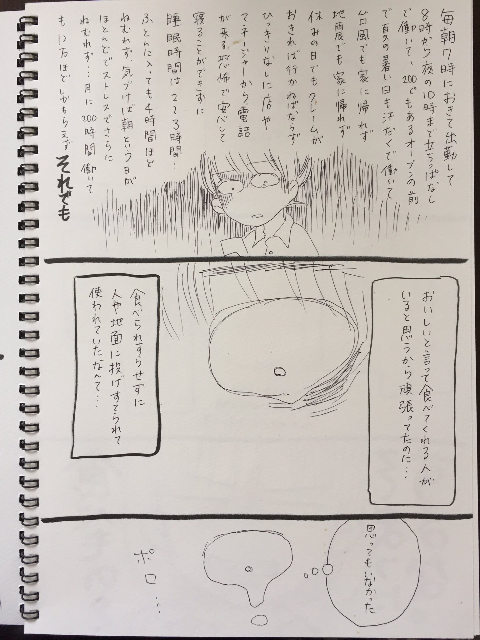 毎朝7時におきて出勤して
8時から夜の10時まで立ちっぱなし
で働いて、200℃もあるオーブンの前
で真夏の暑い日も汗だくで働いて
台風でも家に帰れず
地震でも家に帰れず
休みの日でもクレームが
おきれば行かねばならず
ひっきりなしに店や
マネージャーから電話
が来る恐怖で安心して
寝ることができずに
睡眠時間は2～3時間…
ふとんに入っても4時間ほど
ねむれず気づけば朝という日が
ほとんどでストレスでさらに
ねむれず…月に200時間働いて
も12万ほどしかもらえず
それでも
おいしいと言って食べてくれる人が
いると思うから頑張ってたのに…
食べられすらせずに
人や地面に投げすてられて
使われていたなんて…
思ってもいなかった
ポロ…